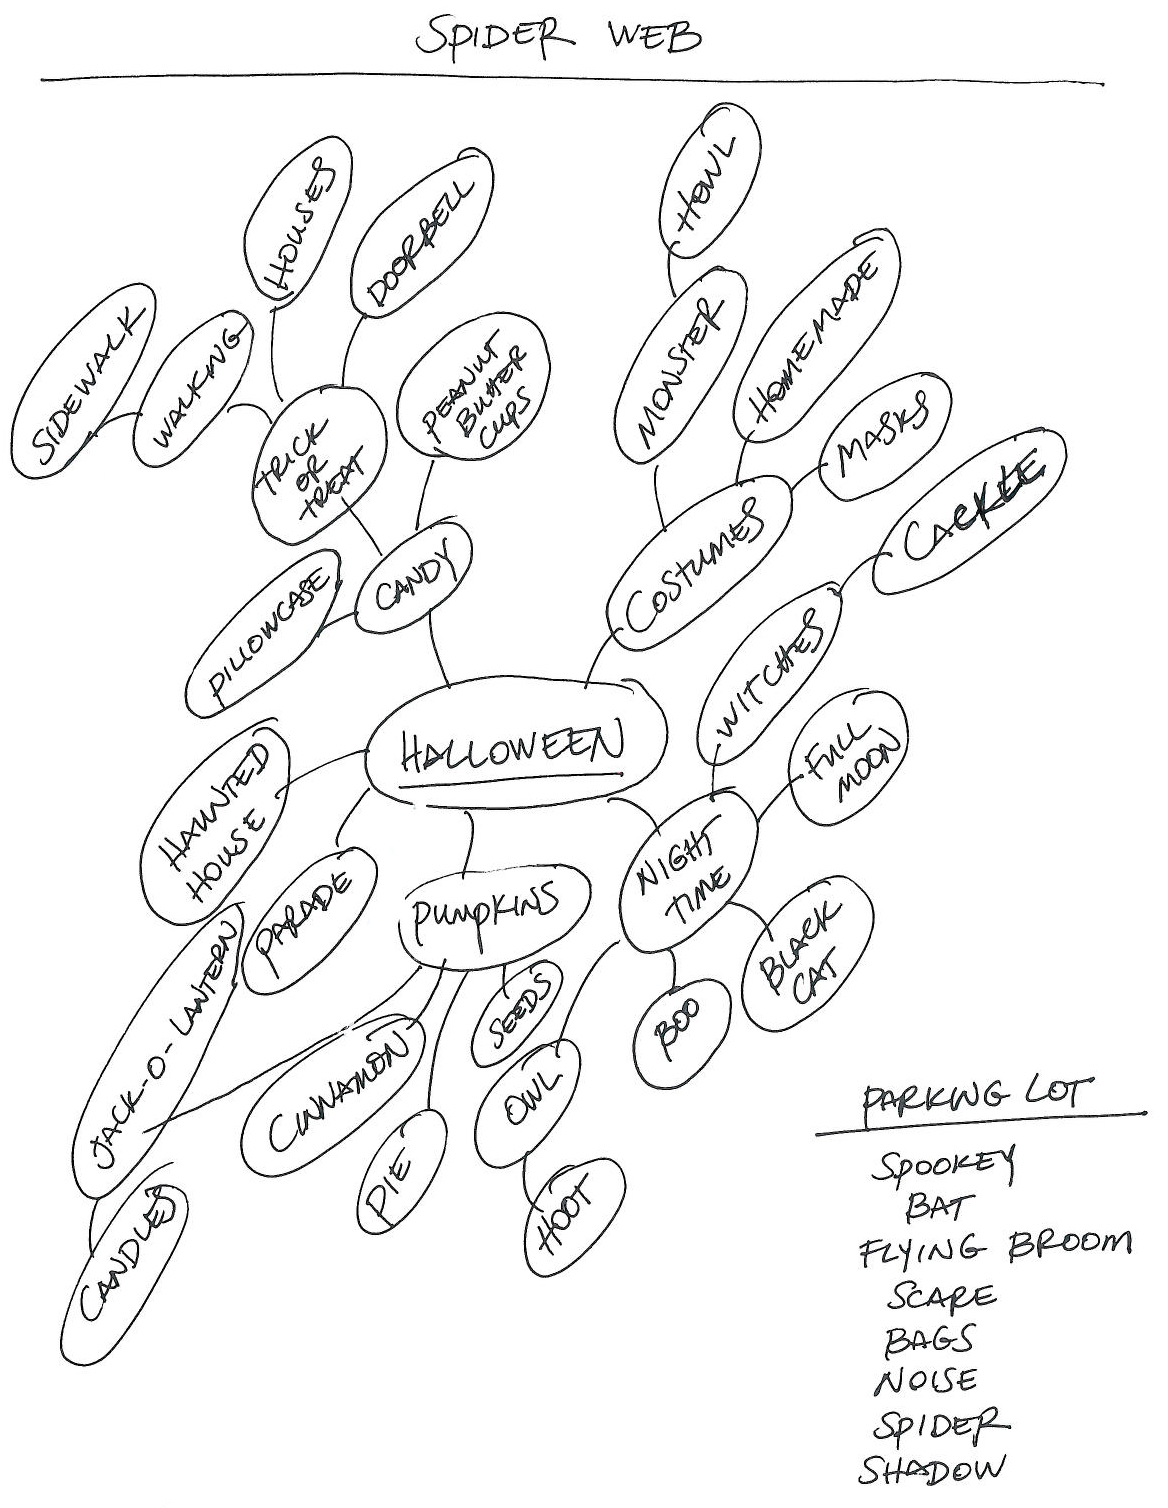 SPIDER WEB
HOWL
HOUSES
DOORBELL
SIDEWALK
WALKING
MONSTER
HOMEMADE
PEANUT
BUTTER
CUPS
MASKS
TRICK
OR
TREAT
CACKLE
COSTUMES
CANDY
PILLOWCASE
WITCHES
HALLOWEEN
FULL
MOON
HAUNTED
HOUSE
NIGHT
TIME
PARADE
PUMPKINS
BLACK
CAT
JACK-O-LANTERN
SEEDS
BOO
CINNAMON
OWL
PIE
HOOT
CANDLES
PARKING LOT
SPOOKEY
BAT
FLYING BROOM
SCARE
BAGS
NOISE
SPIDER
SHADOW